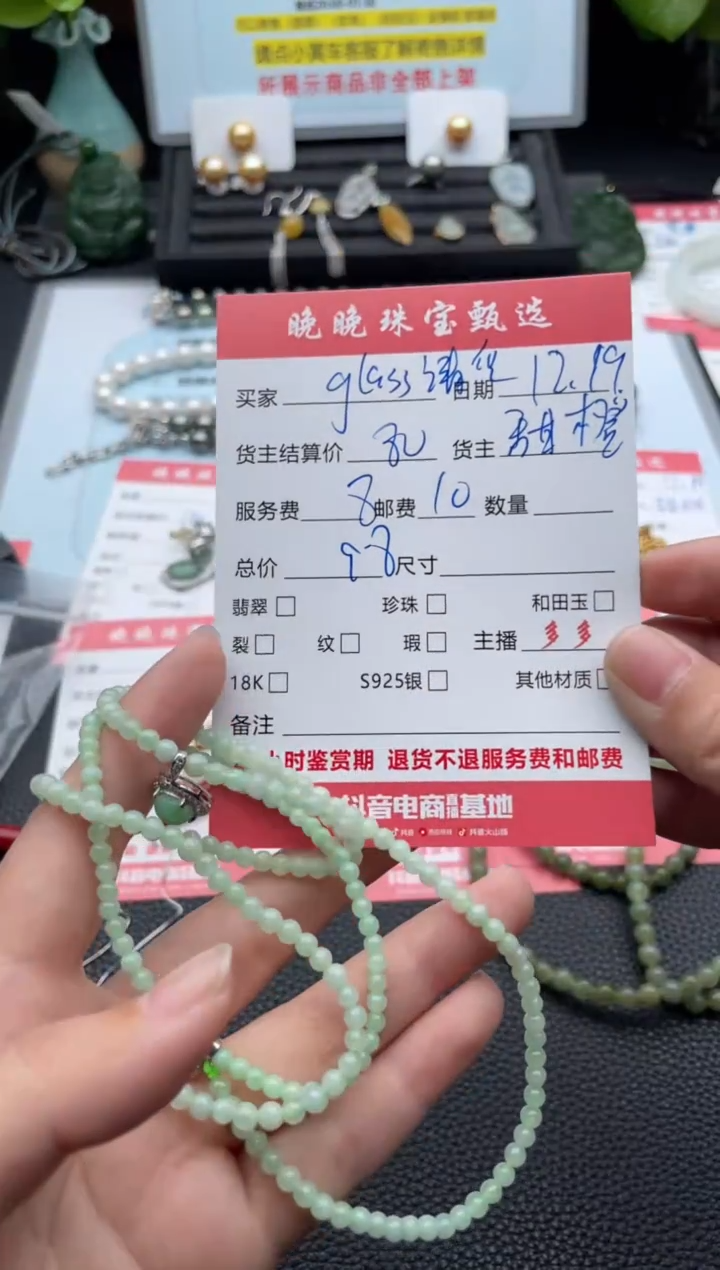 请点小黄车客服了解商品详情
所展示商品非全部上架
晚晚珠宝甄选
买家 glass 日期 12.19.
货主结算价 80 货主
服务费 8 邮费 10 数量
总价 98 尺寸
翡翠 珍珠 和田玉
裂 纹 瑕 主播 多多
18K S925银 其他材质
备注
小时鉴赏期 退货不退服务费和邮费
抖音电商直播基地
抖音 抖音火山版